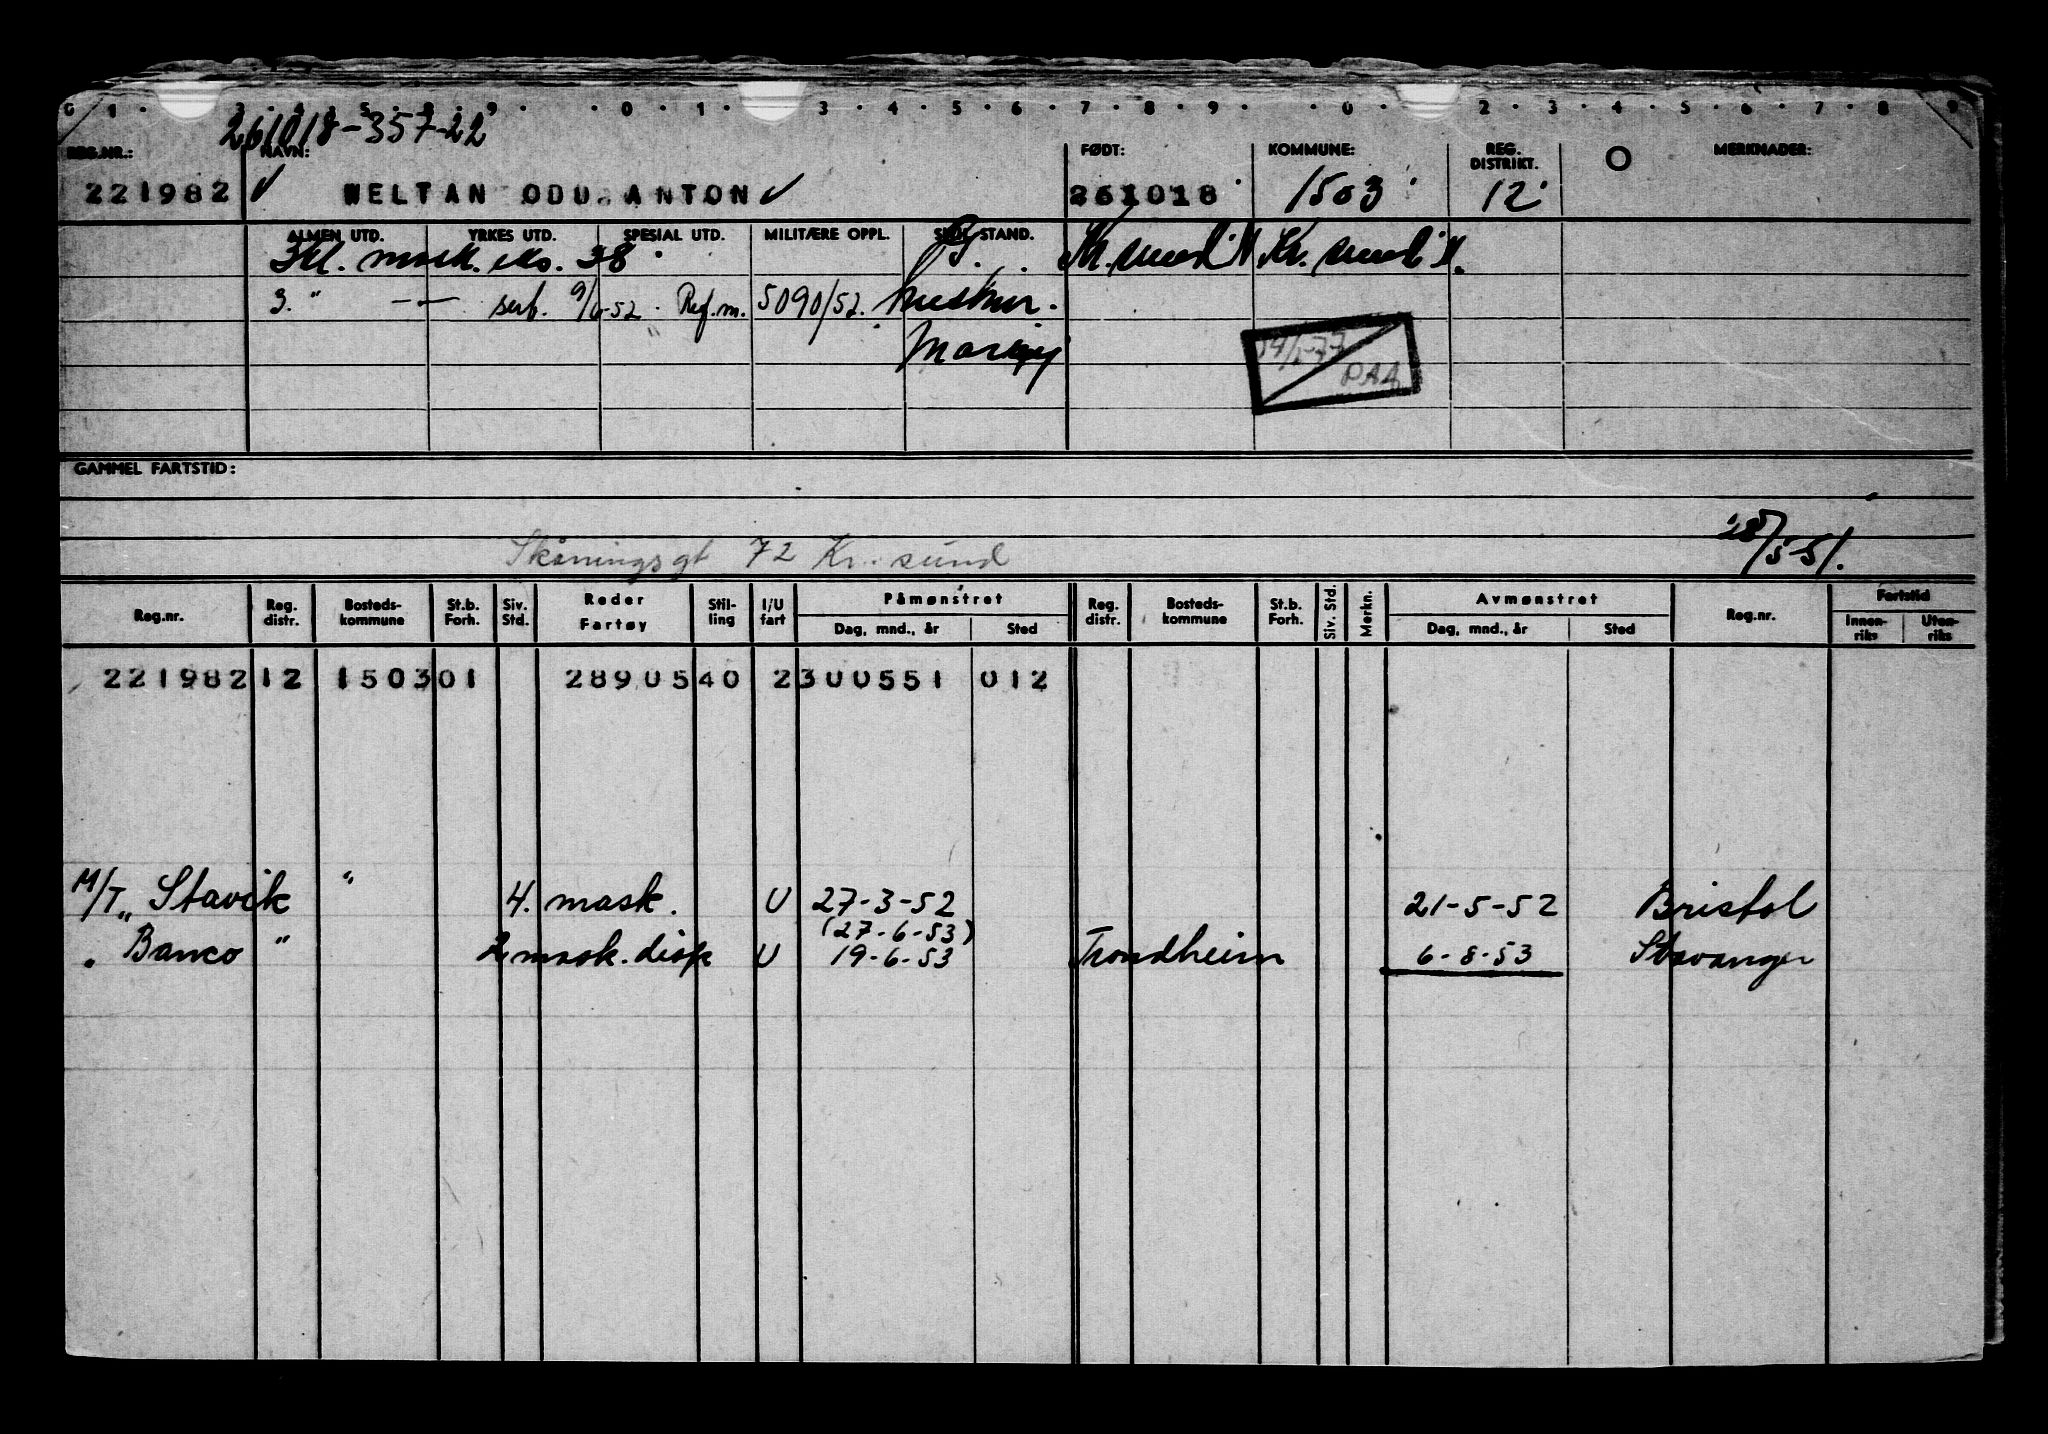 0 1 . 3 . 4 . 5 . 8 . 9 . . 0 . 1 . 3 . 4 . 5 . 6 . 7 . 8 . 9 . . 0 . 2 . 3 . 4 . 5 . 6 . 7 . 8 . 9
261018-357-22
REG.NR.: NAVN: FØDT: KOMMUNE: REG. DISTRIKT. O MERKNADER:
221982 WELTAN ODD ANTON 261018 1503 12
ALMEN UTD. YRKES UTD. SPESIAL UTD. MILITÆRE OPPL. SIV. STAND.
3kl. mask. eks. 38 G. Kr. sund N Kr. sund N.
3. " — — sert. 9/6-52 Ref. m. 5090/52. hustru.
Mary
PAA
GAMMEL FARTSTID:
28/5-51.
Skåningsgt 72 Kr. sund
Reg.nr. Reg. distr. Bosteds-kommune St.b. Forh. Siv. Std. Reder Fartøy Stil-ling I/U fart Påmønstret Dag, mnd., år Sted Reg. distr. Bosteds-kommune St.b. Forh. Siv. Std. Merkn. Avmønstret Dag, mnd., år Sted Reg.nr. Fartstid Innen-riks Uten-riks
221982 12 1503 01 28905 40 2 300551 012
M/T „ Stavik " 4. mask. U 27-3-52 21-5-52 Bristol
(27-6-53)
" Banco " 2 mask. disp U 19-6-53 Trondheim 6-8-53 Stavanger